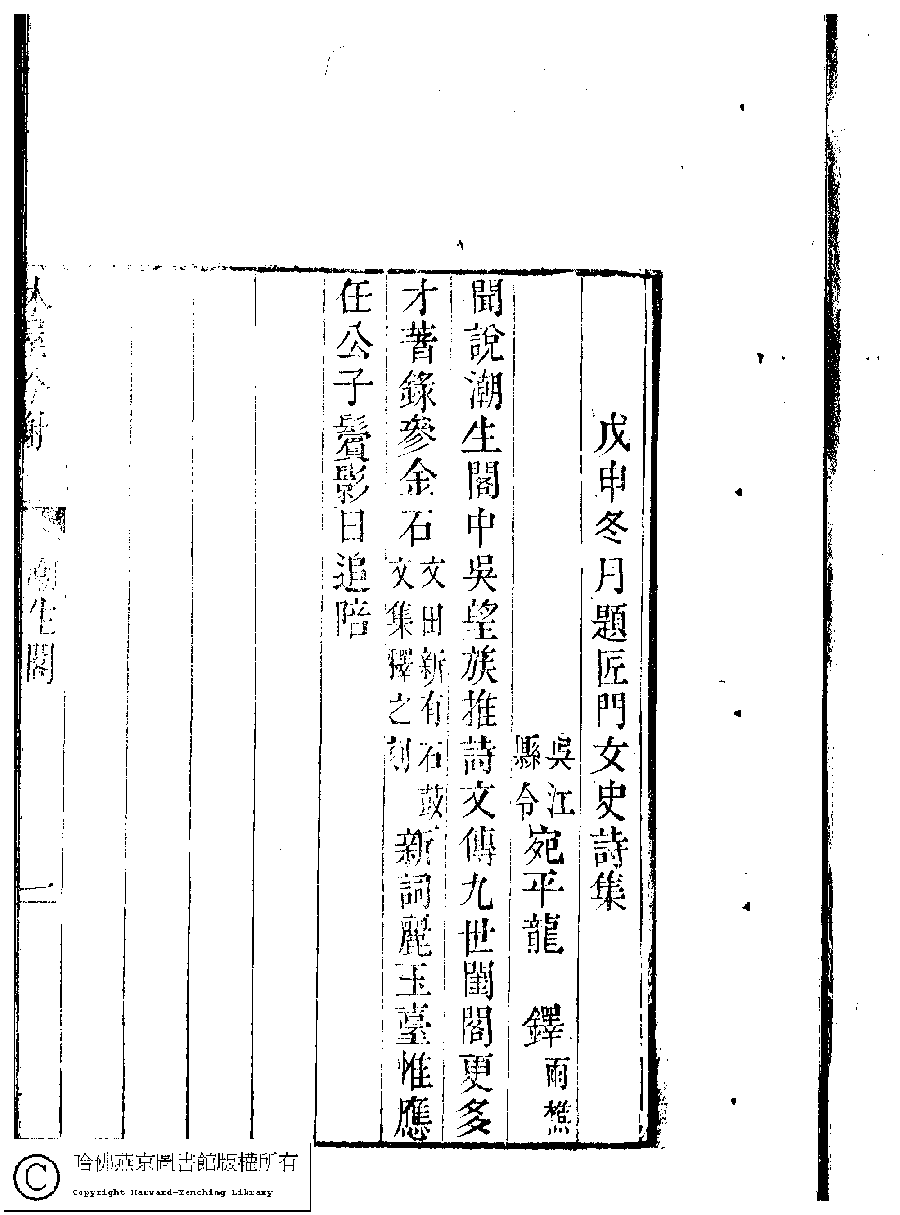 戊申冬月題匠門女史詩集
吳江縣令宛平龍 鐸雨樵
聞說潮生閣中吳望族推詩文傳九世閨閣更多
才著錄參金石文田新有石鼓文集釋之刻新詞麗玉臺惟應
任公子鬢影日追陪
潮生閣
一
哈佛燕京圖書館版權所有
Copyright Harvard-Yenching Library